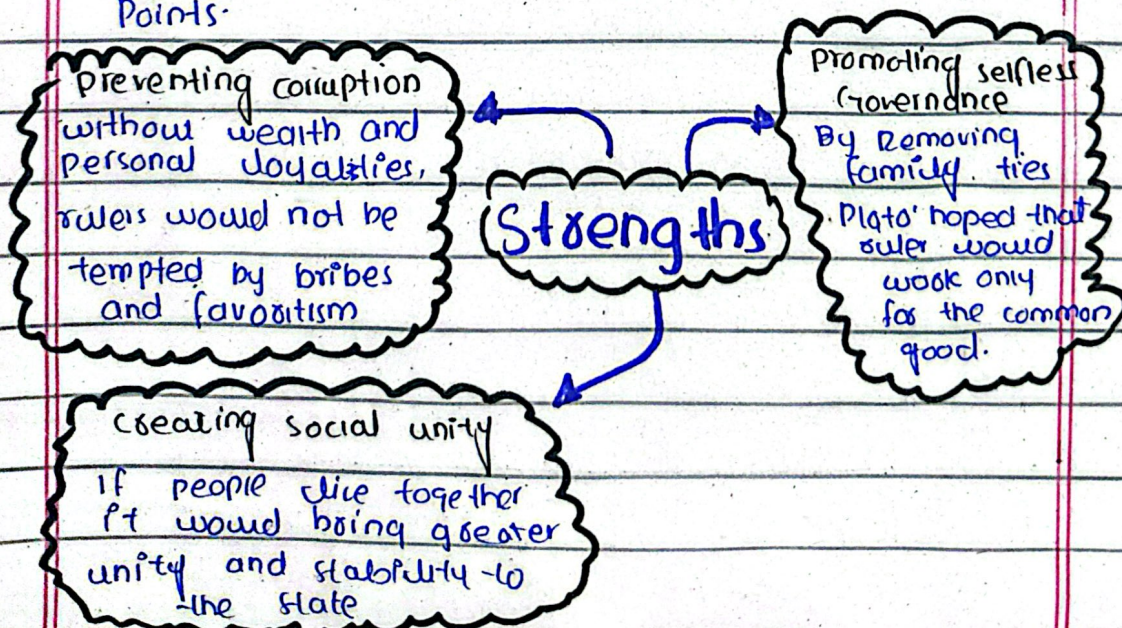 Points.
Preventing corruption
without wealth and
personal loyalties,
rulers would not be
tempted by bribes
and favoritism
Strengths
Promoting selfless
Governance
By Removing
family ties
Plato' hoped that
ruler would
work only
for the common
good.
Creating social unity
if people live together
it would bring greater
unity and stability to
the state